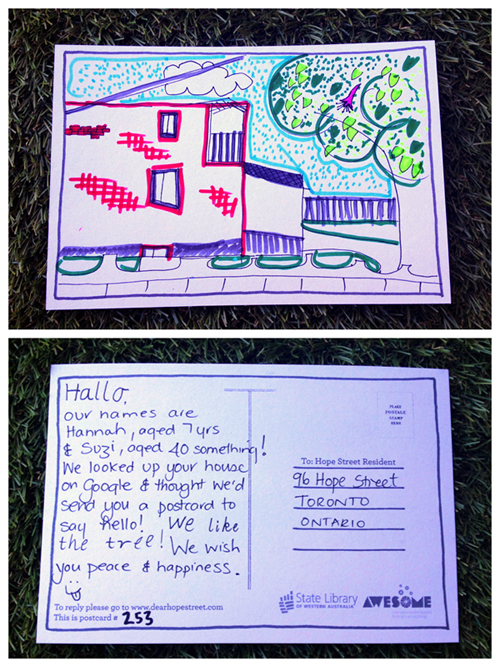 Hallo,
our names are
Hannah, aged 7 yrs
& Suzi, aged 40 something!
We looked up your house
on Google & thought we'd
send you a postcard to
say hello! We like
the tree! We wish
you peace & happiness.
To reply please go to www.dearhopestreet.com
This is postcard # 253
PLACE
POSTAGE
STAMP
HERE
To: Hope Street Resident
96 Hope Street
TORONTO
ONTARIO
State Library
OF WESTERN AUSTRALIA
AWESOME